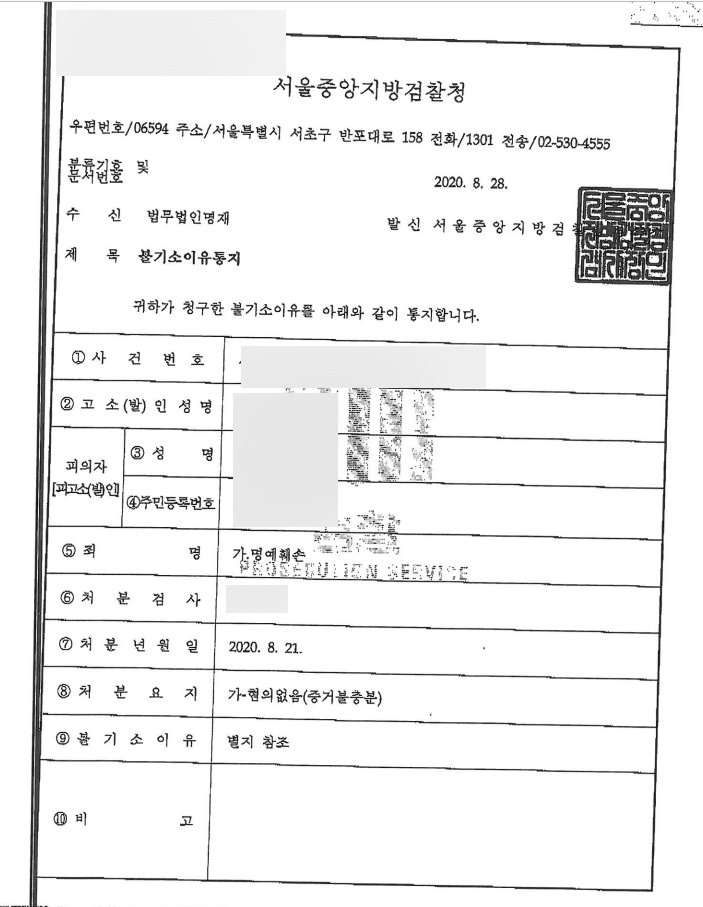 서울중앙지방검찰청
우편번호/06594 주소/서울특별시 서초구 반포대로 158 전화/1301 전송/02-530-4555
분류기호 및
문서번호
2020. 8. 28.
수 신 법무법인명재
발 신 서 울 중 앙 지 방 검 찰
제 목 불기소이유통지
귀하가 청구한 불기소이유를 아래와 같이 통지합니다.
① 사 건 번 호
② 고 소 (발) 인 성 명
피의자
[피고소(발)인]
③ 성 명
④주민등록번호
⑤ 죄 명 가.명예훼손
PROSECUTION SERVICE
⑥ 처 분 검 사
⑦ 처 분 년 월 일 2020. 8. 21.
⑧ 처 분 요 지 가-혐의없음(증거불충분)
⑨ 불 기 소 이 유 별지 참조
⑩ 비 고